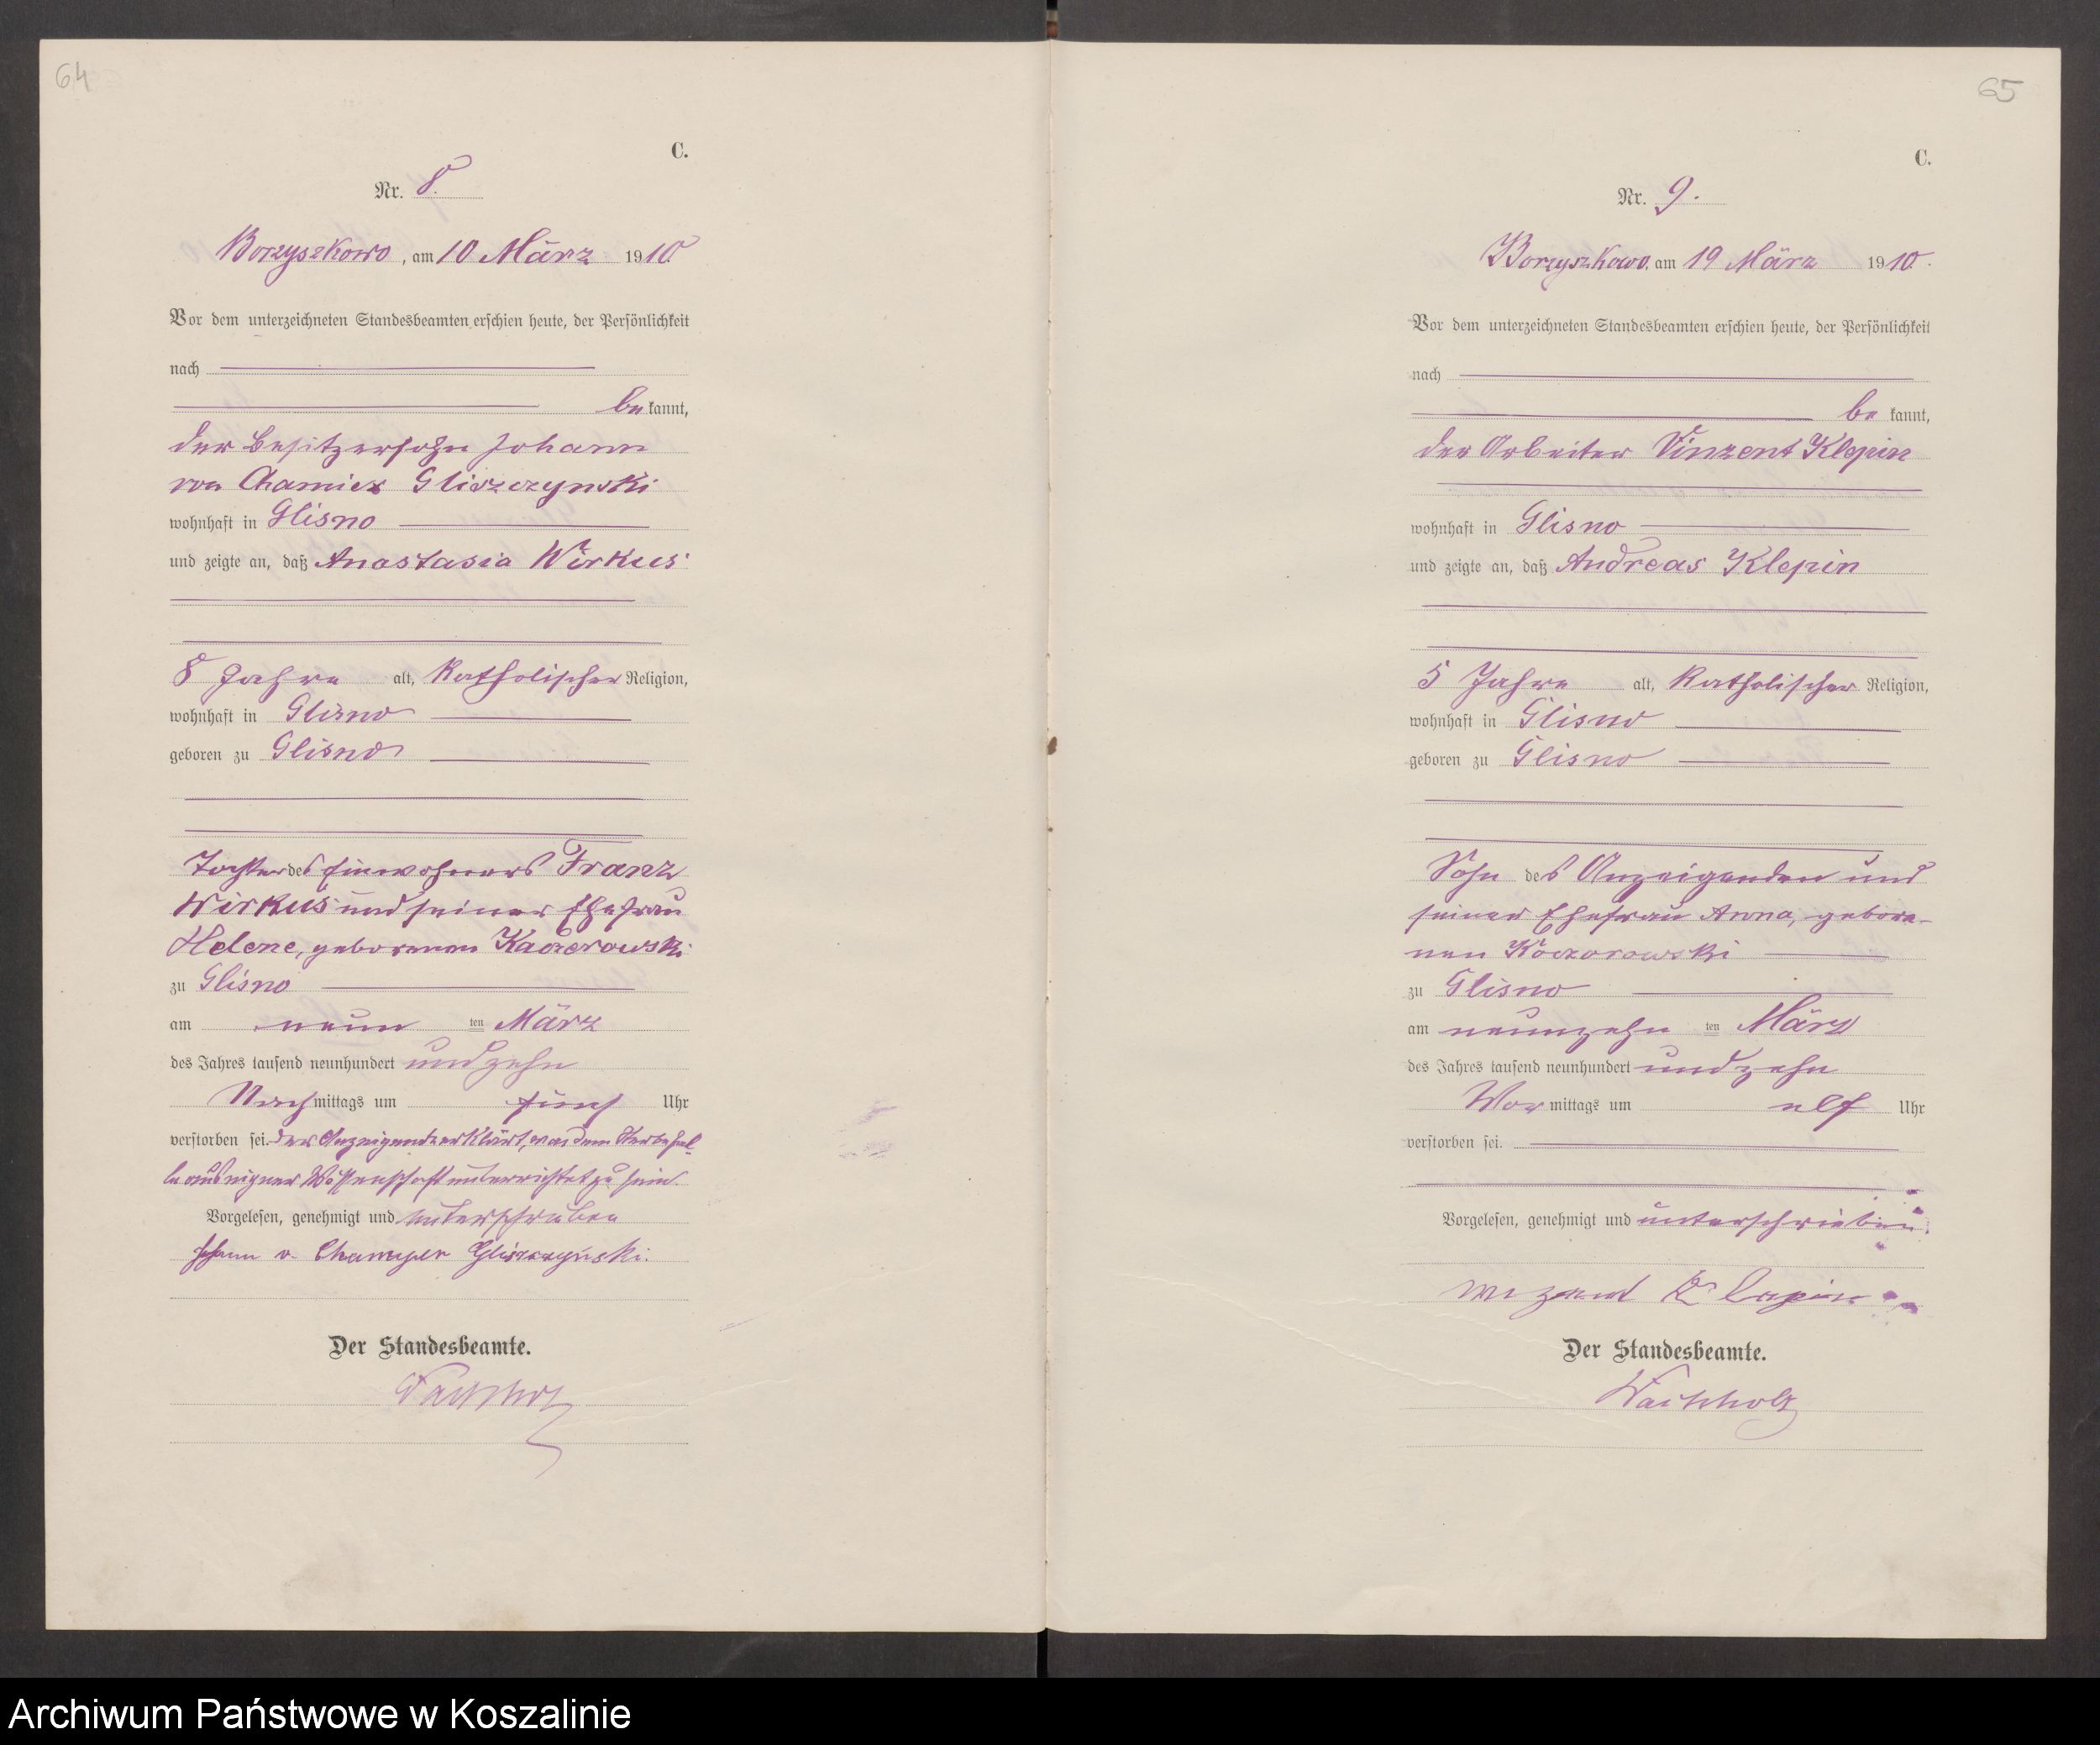 64
C.
Nr. 8.
Borzyszkowo, am 10 März 1910
Vor dem unterzeichneten Standesbeamten erschien heute, der Persönlichkeit
nach
be kannt,
der Besitzersohn Johann
von Chamier Gliszczynski
wohnhaft in Glisno
und zeigte an, daß Anastasia Wirkus
8 Jahre alt, katholischer Religion,
wohnhaft in Glisno
geboren zu Glisno
Tochter des Einwohners Franz
Wirkus und seiner Ehefrau
Helene, geborenen
zu Glisno
am neun ten März
des Jahres tausend neunhundert und zehn
Nach mittags um fünf Uhr
verstorben sei. Der Anzeigende erklärt, von dem Sterbefal-
le aus eigner Wissenschaft unterrichtet zu sein.
Vorgelesen, genehmigt und unterschrieben
Johann v. Chamyer Gliszczyński.
Der Standesbeamte.
Wachholz
65
C.
Nr. 9.
Borzyszkowo, am 19 März 1910.
Vor dem unterzeichneten Standesbeamten erschien heute, der Persönlichkeit
nach
be kannt,
der Arbeiter Vinzent Klepin
wohnhaft in Glisno
und zeigte an, daß Andreas Klepin
5 Jahre alt, katholischer Religion,
wohnhaft in Glisno
geboren zu Glisno
Sohn des Anzeigenden und
seiner Ehefrau Anna, gebore-
nen
zu Glisno
am neunzehn ten März
des Jahres tausend neunhundert und zehn
Vor mittags um elf Uhr
verstorben sei.
Vorgelesen, genehmigt und unterschrieben.
Der Standesbeamte.
Wachholz
Archiwum Państwowe w Koszalinie